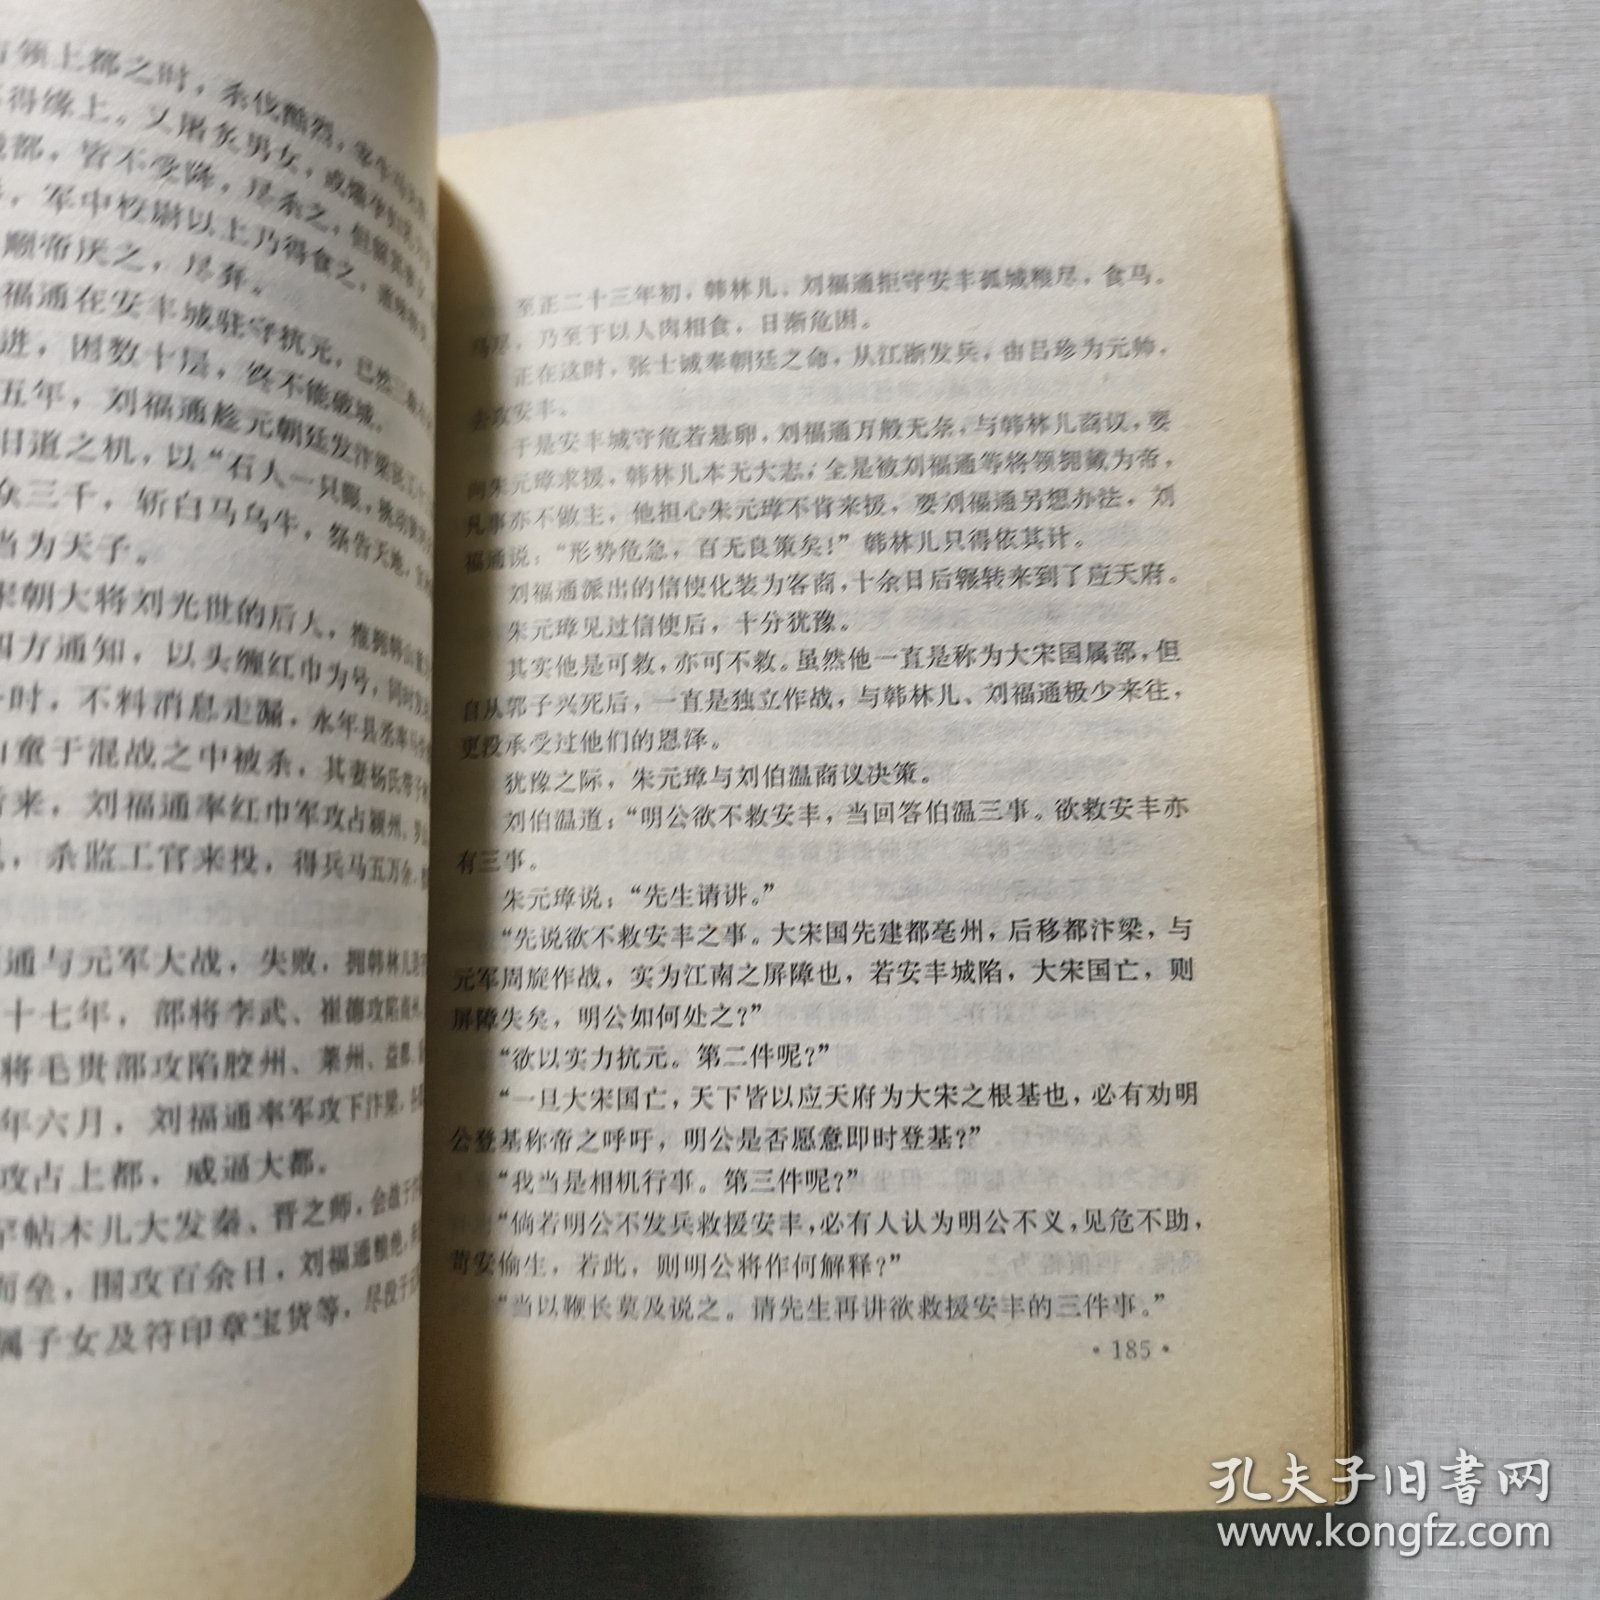 领上都之时，
得缘上。又屠炙男女，
都，皆不受降，尽杀之，
，军中校尉以上乃得食之，
顺帝厌之，尽弃。
福通在安丰城驻守抗元，已然
进，困数十层，终不能破城。
五年，刘福通趁元朝廷发汴梁
旧道之机，以“石人一只眼，
众三千，斩白马乌牛，祭告天地，
当为天子。
宋朝大将刘光世的后人，推拥韩山童
四方通知，以头缠红巾为号，同时
时，不料消息走漏，永年县
童于混战之中被杀，其妻杨氏
来，刘福通率红巾军攻占颍州、
，杀监工官来投，得兵马五万余，
通与元军大战，失败，拥韩林儿
十七年，部将李武、崔德攻陷
将毛贵部攻陷胶州、莱州、益都、
年六月，刘福通率军攻下汴梁，
攻占上都，威逼大都。
罕帖木儿大发秦、晋之师，会战于
而垒，围攻百余日，刘福通粮绝，
属子女及符印章宝货等，尽没于
至正二十三年初，韩林儿、刘福通拒守安丰孤城粮尽，食马。
马尽，乃至于以人肉相食，日渐危困。
正在这时，张士诚奉朝廷之命，从江浙发兵，由吕珍为元帅，
去攻安丰。
于是安丰城守危若悬卵，刘福通万般无奈，与韩林儿商议，要
向朱元璋求援，韩林儿本无大志，全是被刘福通等将领拥戴为帝，
凡事亦不做主，他担心朱元璋不肯来援，要刘福通另想办法，刘
福通说：“形势危急，百无良策矣！”韩林儿只得依其计。
刘福通派出的信使化装为客商，十余日后辗转来到了应天府。
朱元璋见过信使后，十分犹豫。
其实他是可救，亦可不救。虽然他一直是称为大宋国属部，但
自从郭子兴死后，一直是独立作战，与韩林儿、刘福通极少来往，
更没承受过他们的恩泽。
犹豫之际，朱元璋与刘伯温商议决策。
刘伯温道：“明公欲不救安丰，当回答伯温三事。欲救安丰亦
有三事。
朱元璋说：“先生请讲。”
“先说欲不救安丰之事。大宋国先建都亳州，后移都汴梁，与
元军周旋作战，实为江南之屏障也，若安丰城陷，大宋国亡，则
屏障失矣，明公如何处之？”
“欲以实力抗元。第二件呢？”
“一旦大宋国亡，天下皆以应天府为大宋之根基也，必有劝明
公登基称帝之呼吁，明公是否愿意即时登基？”
“我当是相机行事。第三件呢？”
“倘若明公不发兵救援安丰，必有人认为明公不义，见危不助，
苟安偷生，若此，则明公将作何解释？”
“当以鞭长莫及说之。请先生再讲欲救援安丰的三件事。”
·185·
孔夫子旧书网
www.kongfz.com